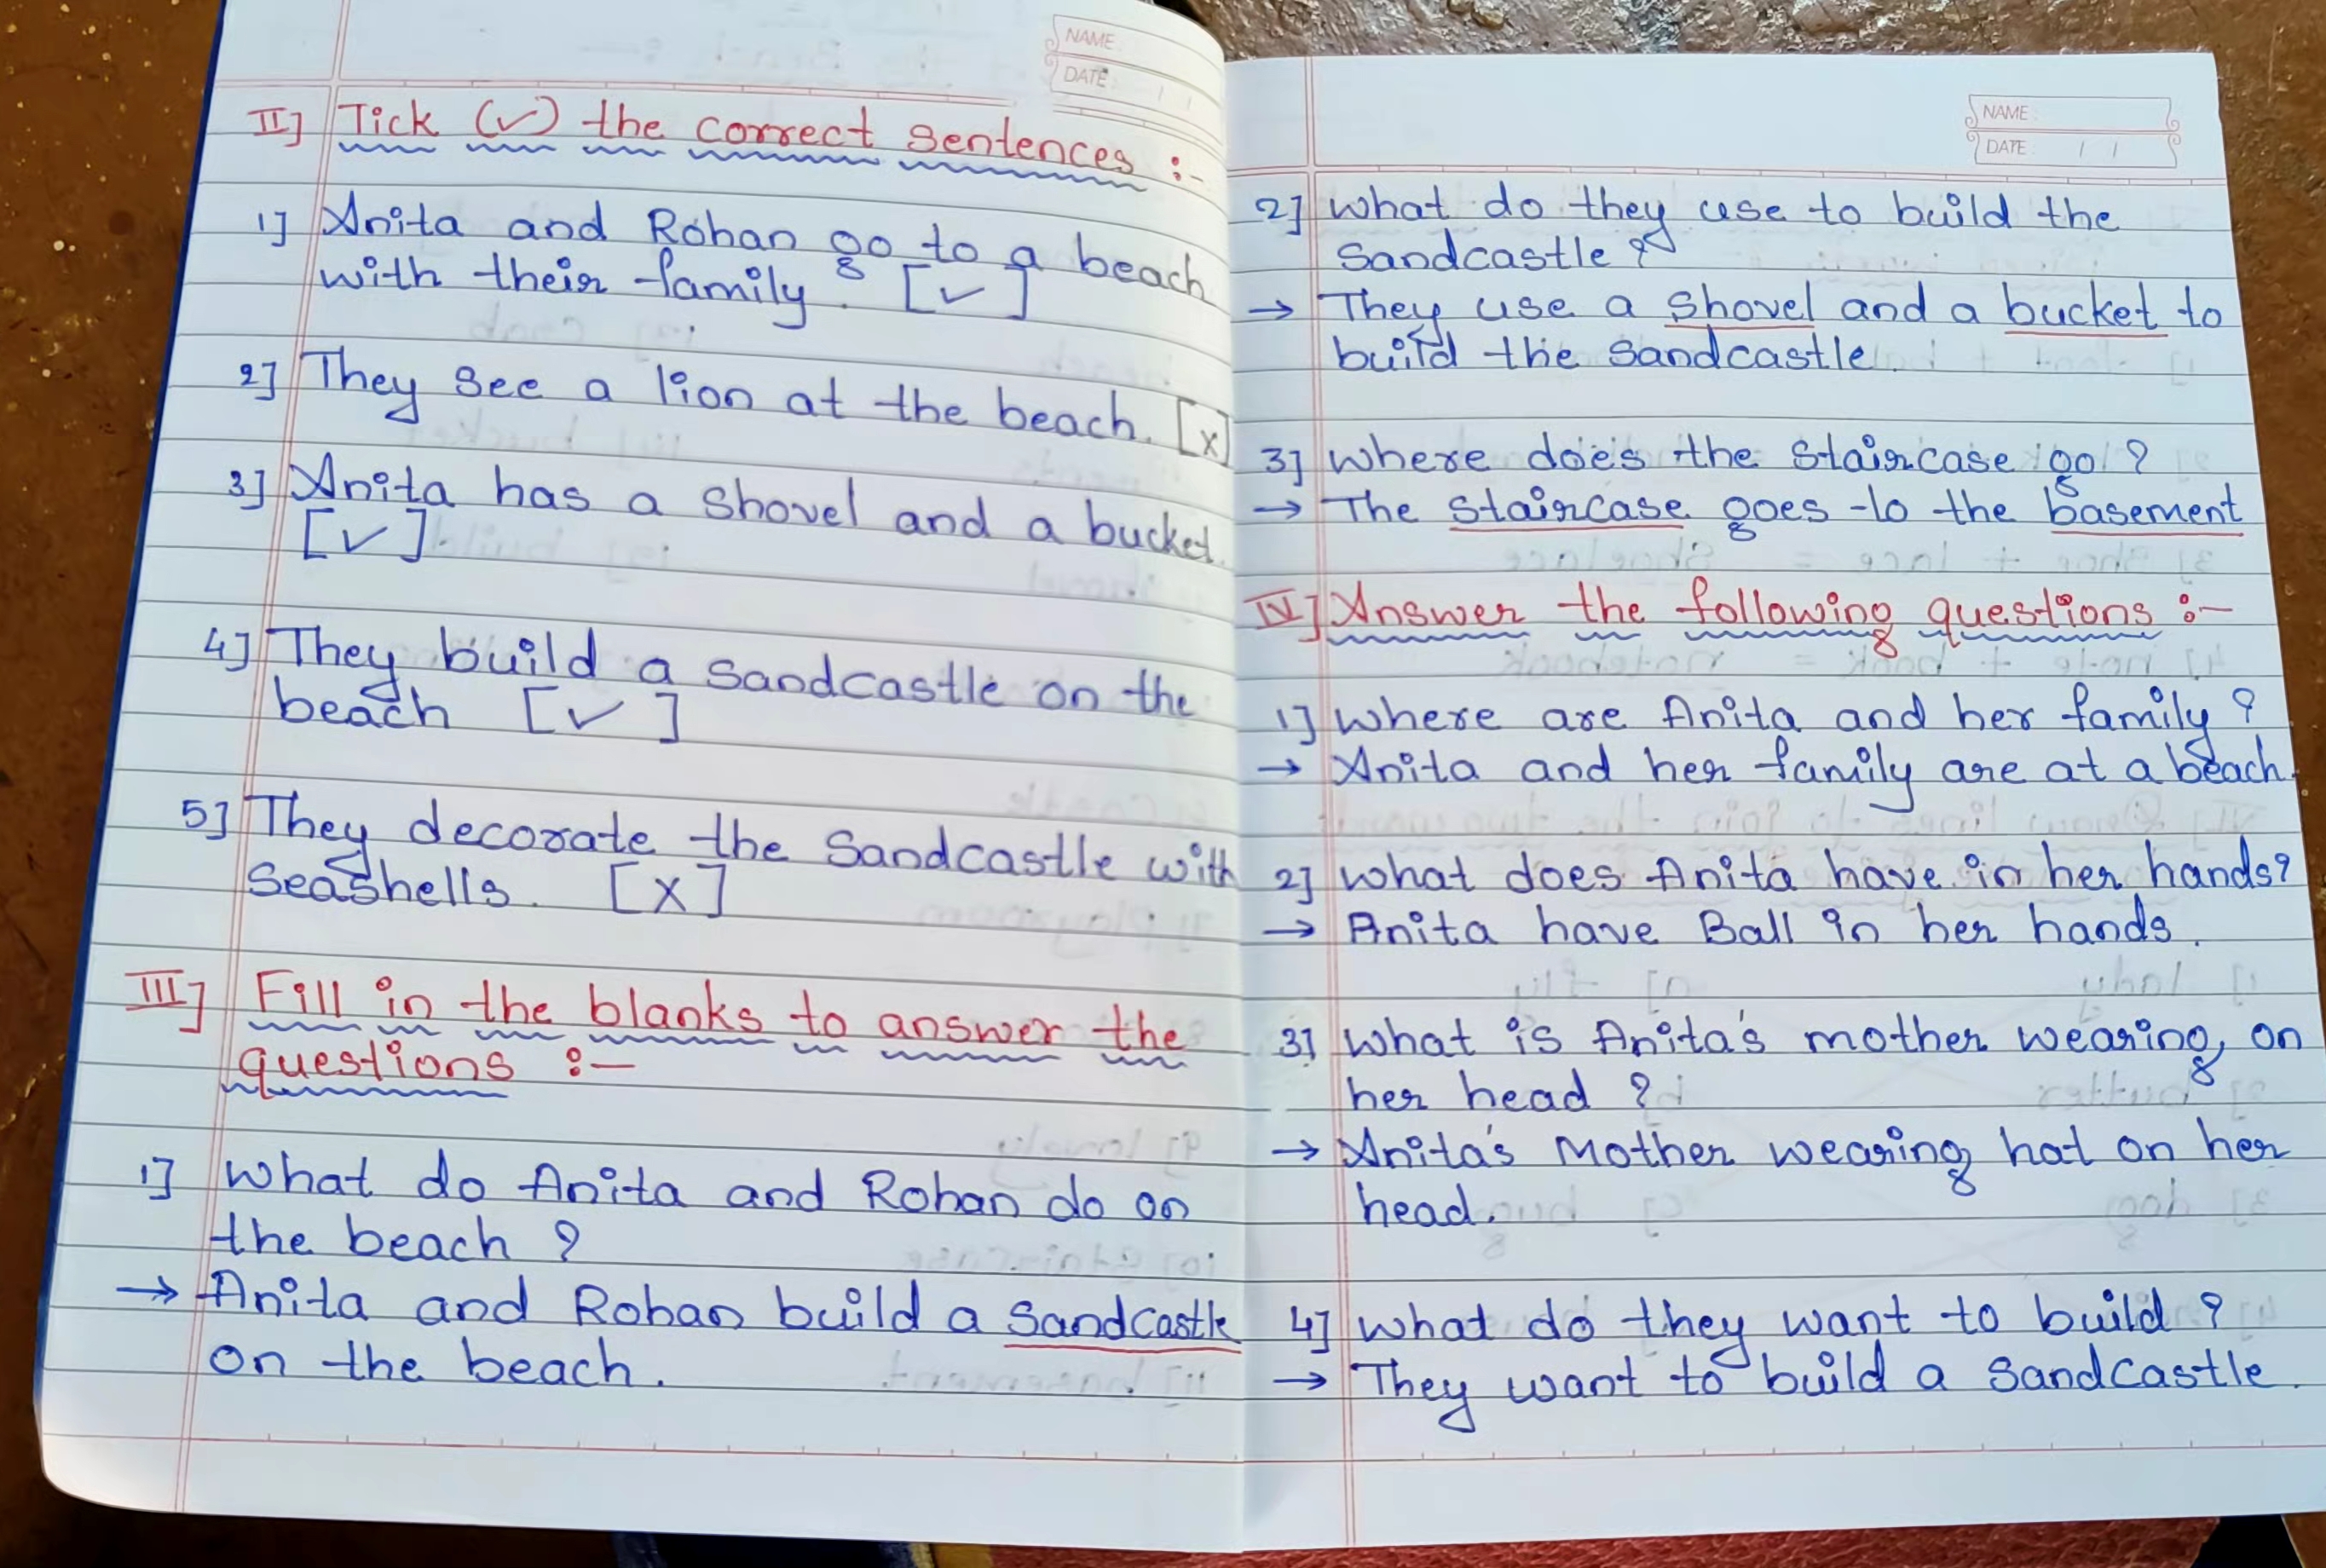 NAME:
DATE: / /
II] Tick (✓) the correct sentences :-
1] Anita and Rohan go to a beach
with their family. [✓]
2] They see a lion at the beach. [x]
3] Anita has a shovel and a bucket.
[✓]
4] They build a sandcastle on the
beach [✓]
5] They decorate the Sandcastle with
seashells. [x]
III] Fill in the blanks to answer the
questions :-
1] What do Anita and Rohan do on
the beach ?
→ Anita and Rohan build a sandcastle
on the beach.
NAME:
DATE: / /
2] What do they use to build the
sandcastle ?
→ They use a shovel and a bucket to
build the sandcastle.
3] Where does the staircase go ?
→ The staircase goes to the basement
IV] Answer the following questions :-
1] Where are Anita and her family ?
→ Anita and her family are at a beach.
2] What does Anita have in her hands?
→ Anita have Ball in her hands.
3] What is Anita's mother wearing on
her head ?
→ Anita's Mother wearing hat on her
head.
4] What do they want to build ?
→ They want to build a sandcastle.